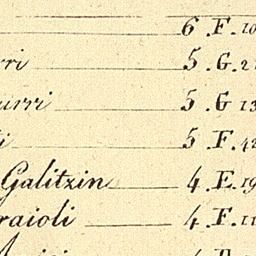 6 .F. 10
rri 5 .G. 2
urri 5 .G 13
i 5 .F. 42
Galitzin 4 .E. 19
raioli 4 .F. 11